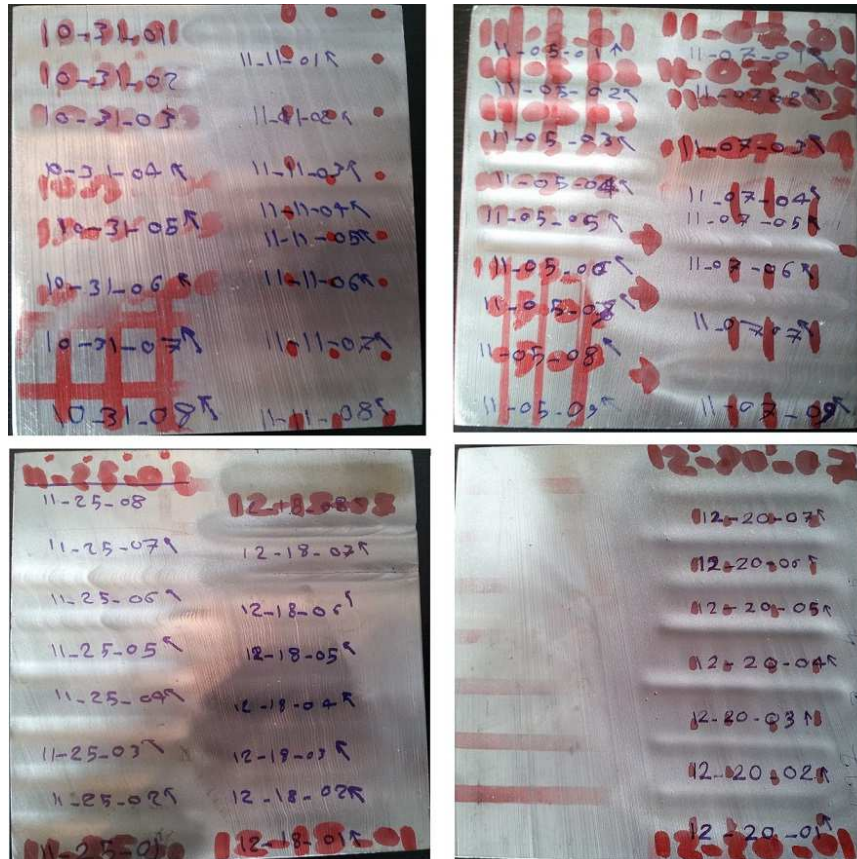 10-31-01
10-31-02
10-31-03
10-31-04
10-31-05
10-31-06
10-31-07
10-31-08
11-11-01
11-11-02
11-11-03
11-11-04
11-11-05
11-11-06
11-11-07
11-11-08
11-05-01
11-05-02
11-05-03
11-05-04
11-05-05
11-05-06
11-05-08
11-05-09
11-07-01
11-07-02
11-07-03
11-07-04
11-07-05
11-07-06
11-07-07
11-07-09
11-25-08
11-25-07
11-25-06
11-25-05
11-25-04
11-25-03
11-25-02
11-25-01
12-18-08
12-18-07
12-18-06
12-18-05
12-18-04
12-18-03
12-18-02
12-18-01
12-20-07
12-20-06
12-20-05
12-20-04
12-20-03
12-20-02
12-20-01